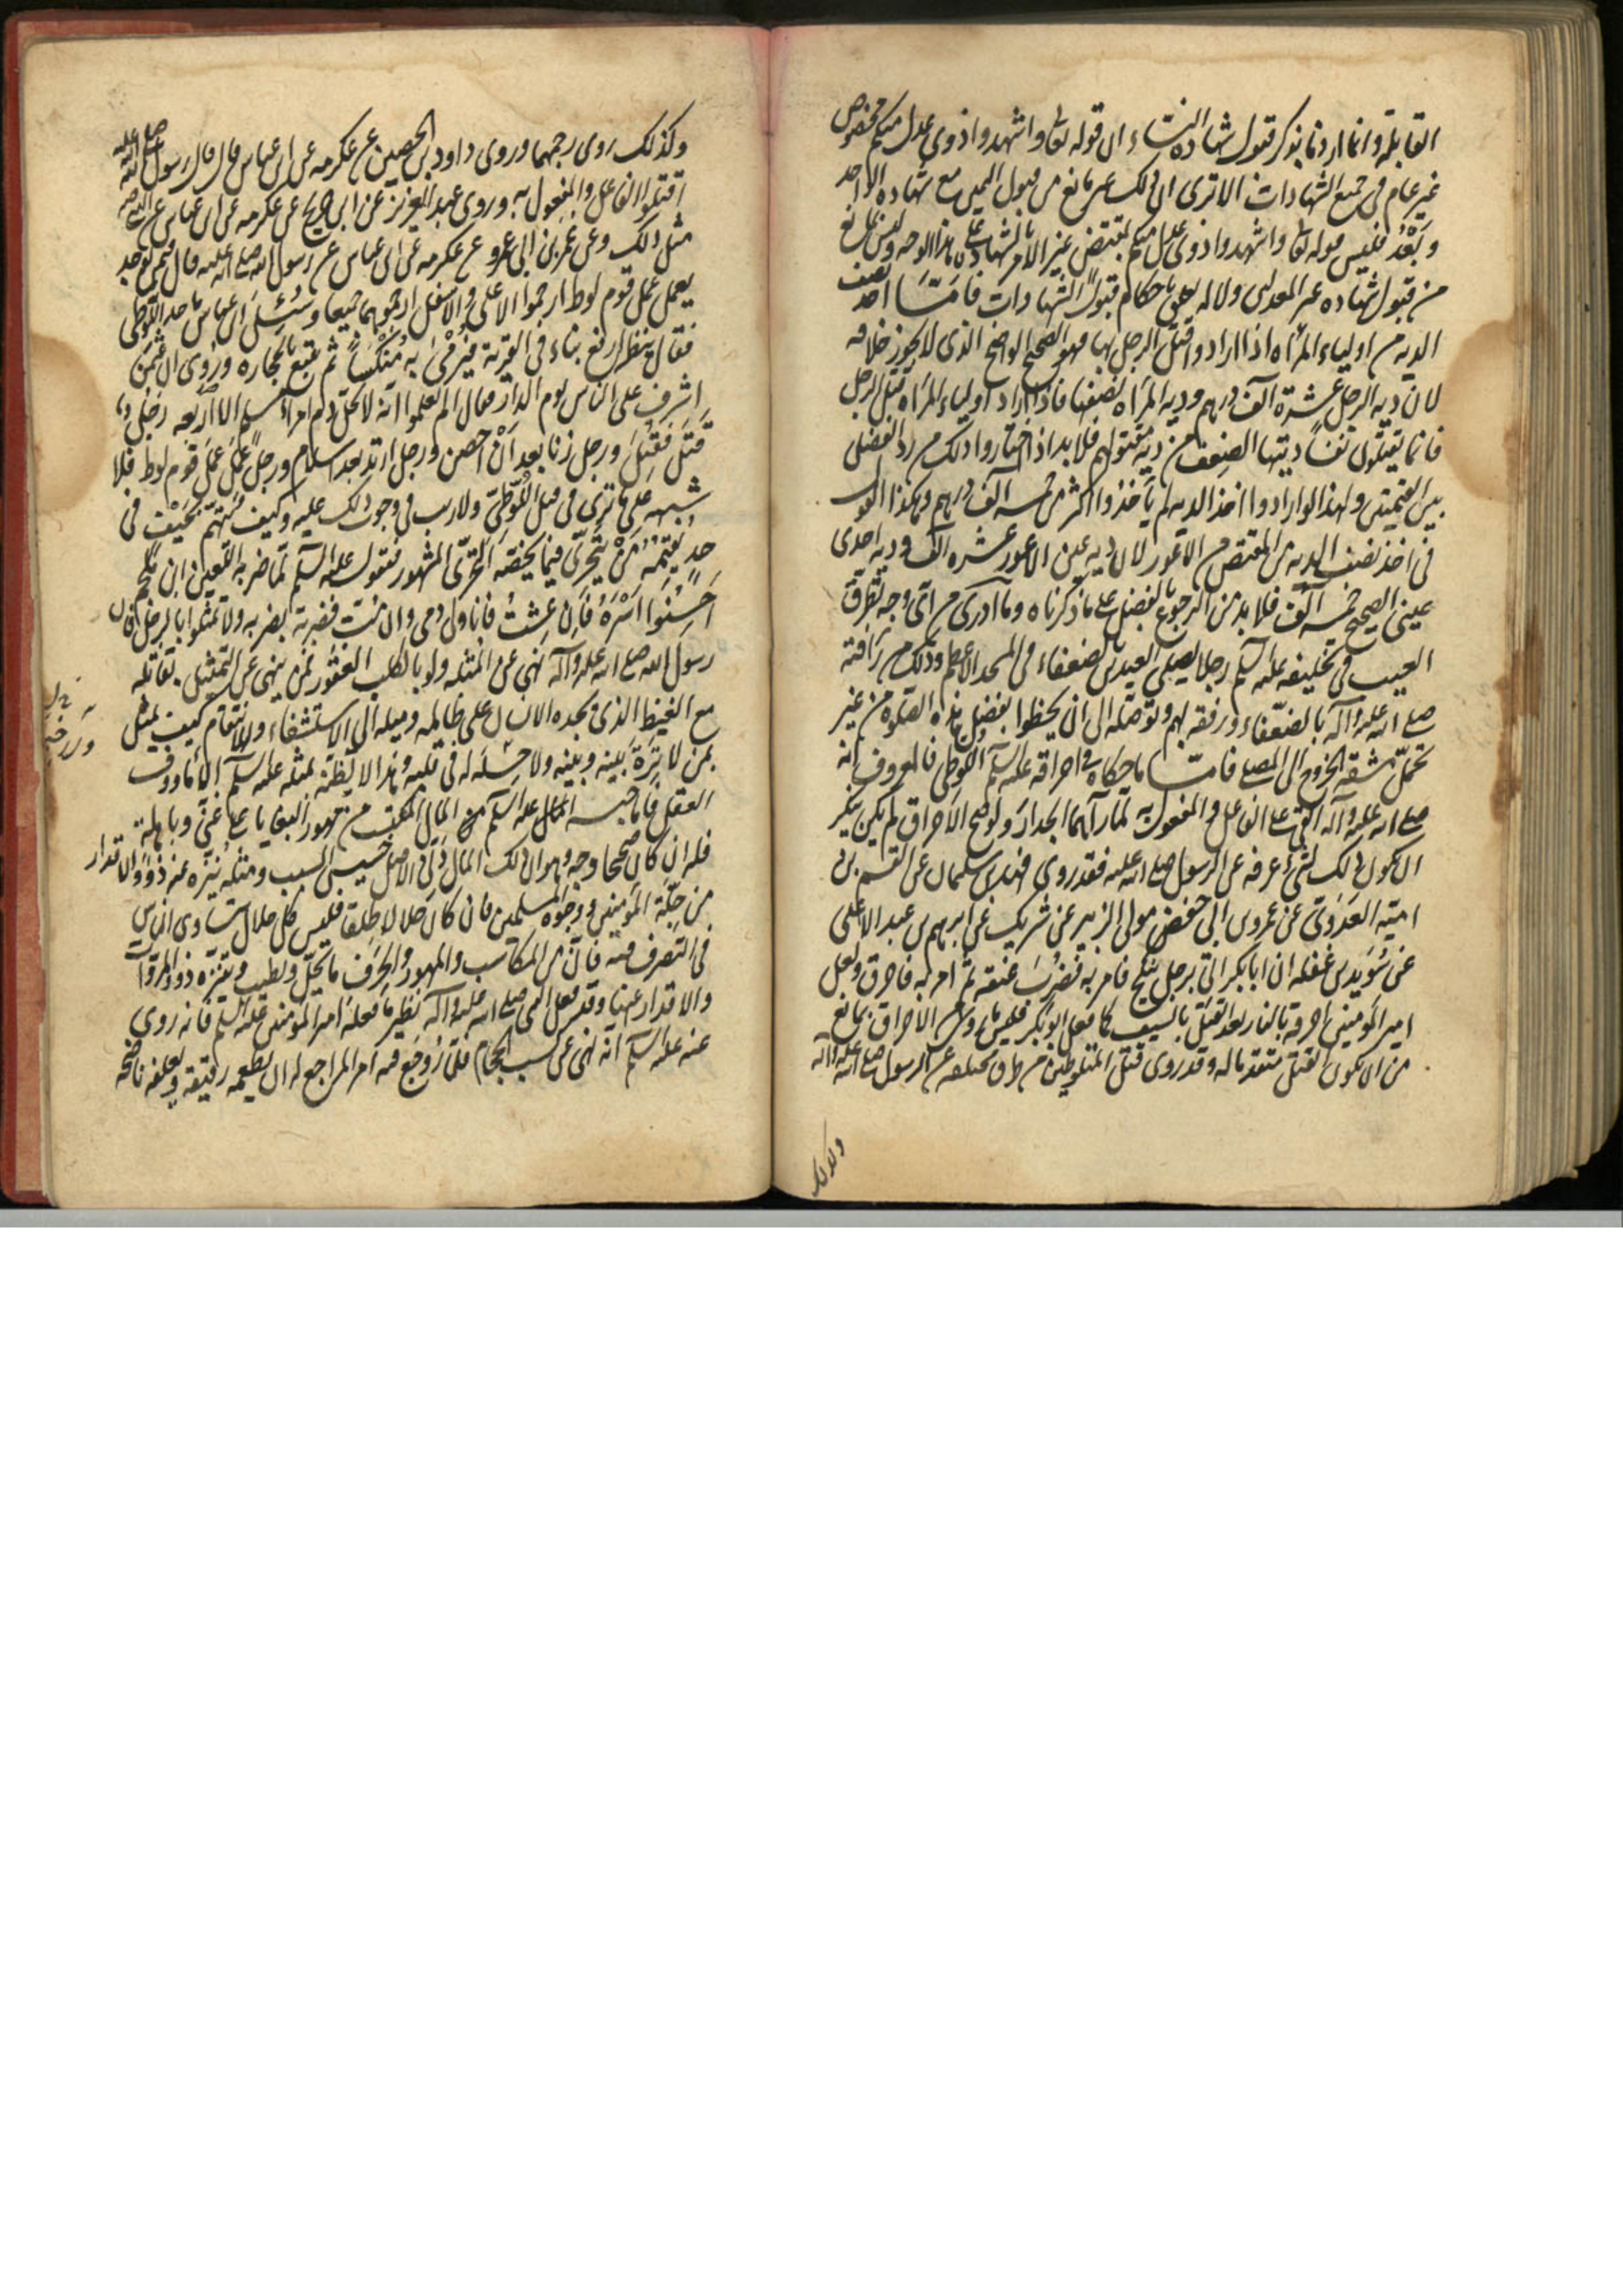 القابلة وانما اردنا بذكر قبول شهادة النساء ان قوله تعالى واشهدوا ذوى عدل منكم مخصوص
غير عام فى جميع الشهادات الا ترى ان ذلك غير مانع من قبول اليمين مع شهادة الواحد
وبعد فليس قوله تعالى واشهدوا ذوى عدل منكم بمقتض غير الامر بالشهادة على هذا الوجه وليس بمانع
من قبول شهادة غير العدلين ولا له تعلق باحكام قبول الشهادات فامّا اخذ نصف
الدية من اولياء المرأة اذا ارادوا قتل الرجل بها فهو الصحيح الواضح الذى لا يجوز خلافه
لان دية الرجل عشرة آلاف درهم ودية المرأة نصفها فاذا اراد اولياء المرأة قتل الرجل
فانما يقتلون نفسا ديتها الضعف من دية مقتولهم فلا بد اذا اختاروا ذلك من رد الفضل
بين القيمتين ولهذا لو ارادوا اخذ الدية لم ياخذوا اكثر من خمسة آلاف درهم وهكذا القول
فى اخذ نصف الدية من المقتص من الاعور لان دية عين الاعور عشرة آلاف ودية احدى
عينى الصحيح خمسة آلاف فلا بد من الرجوع بالفضل على ما ذكرناه وما ادرى من اى وجه تطرق
العيب فى تخليفه عليه السلم رجلا يصلى العيدين بالضعفاء فى المسجد الاعظم وذلك من رأفته
صلى الله عليه وآله بالضعفاء ورفقه بهم وتوصله الى ان يحظوا بفضل هذه الصلوة من غير
تحمل مشقة الخروج الى المصلى فامّا ما حكاه فى احراقه عليه السلم اللوطى فالمعروف انه
صلى الله عليه وآله القى على الفاعل والمفعول به لما رآهما الجدار ولو صح الاحراق لم يكن ينكر
ان يكون ذلك لشىء عرفه عن الرسول صلى الله عليه فقد روى فهد بن سليمان عن القسم بن
امية العدوى عن عمر بن ابى حفص مولى الزبير عن شريك عن ابرهيم بن عبد الاعلى
عن سويد بن غفلة ان ابا بكر اتى برجل ينكح فامر به فضربت عنقه ثم امر به فاحرق ولعل
امير المؤمنين احرقه بالنار بعد القتل بالسيف كما فعل ابو بكر فليس ما روى من الاحراق بمانع
من ان يكون القتل متقدما له وقد روى قتل المتلوطين من طرق مختلفة عن الرسول صلى الله عليه وآله
وكذلك روى رجمهما وروى داود بن الحصين عن عكرمة عن ابن عباس قال قال رسول الله صلى الله عليه
اقتلوا الفاعل والمفعول به وروى عبد العزيز عن ابن جريج عن عكرمة عن ابن عباس عن النبى صلى الله عليه
مثل ذلك وعن عمر بن ابى عمرو عن عكرمة عن ابن عباس عن رسول الله صلى الله عليه قال فيمن يوجد
يعمل عمل قوم لوط ارجموا الاعلى والاسفل ارجموهما جميعا وسئل ابن عباس ما حد اللوطى
فقال ينظر ارفع بناء فى القرية فيرمى به منكسا ثم يتبع بالحجارة وروى ان عثمن
اشرف على الناس يوم الدار فقال الم تعلموا انه لا يحل دم امرء مسلم الا اربعة رجل
قتل فقتل ورجل زنا بعد ان احصن ورجل ارتد بعد اسلام ورجل عمل عمل قوم لوط فلا
شبهة على ما ترى فى قتل اللوطى ولا ريب فى وجوب ذلك عليه وكيف يتهم بحيف فى
حد يقيمه من يتحرى فيما يخصه التحرى المشهور فيقول عليه السلم لما ضربه اللعين ابن ملجم
احسنوا اسره فان عشت فانا ولى دمى وان مت فضربة بضربة ولا تمثلوا بالرجل فان
رسول الله صلى الله عليه وآله نهى عن المثلة ولو بالكلب العقور فمن ينهى عن التمثيل بقاتله
مع الغيظ الذى يجده الانسان على ظالمه وميله الى الاستشفاء والانتقام كيف يمثل
بمن لا ترة بينه وبينه ولا حسيكة له فى قلبه وهذا لا يظنه بمثله عليه السلم الا مأووف
العقل فاما حبسه عليه السلم المال المكتسب من مهور البغايا على غنى وباهلة
فله ان كان صحيحا وجه وهو ان ذلك المال دنى الاصل خسيس السبب ومثله يتنزه عنه ذوو الاقدار
من جلة المؤمنين ووجوه المسلمين وان كان حلالا طلقا فليس كل حلال يتساوى الناس
فى التصرف فيه فان من المكاسب والمهور والحرف ما يحل ويطيب ويتنزه ذوو المروآت
والاقدار عنها وقد فعل النبى صلى الله عليه وآله نظير ما فعله امير المؤمنين عليه السلم فانه روى
عنه عليه السلم انه نهى عن كسب الحجام فلما روجع فيه امر المراجع له ان يطعمه رقيقه ويعلفه ناضحه